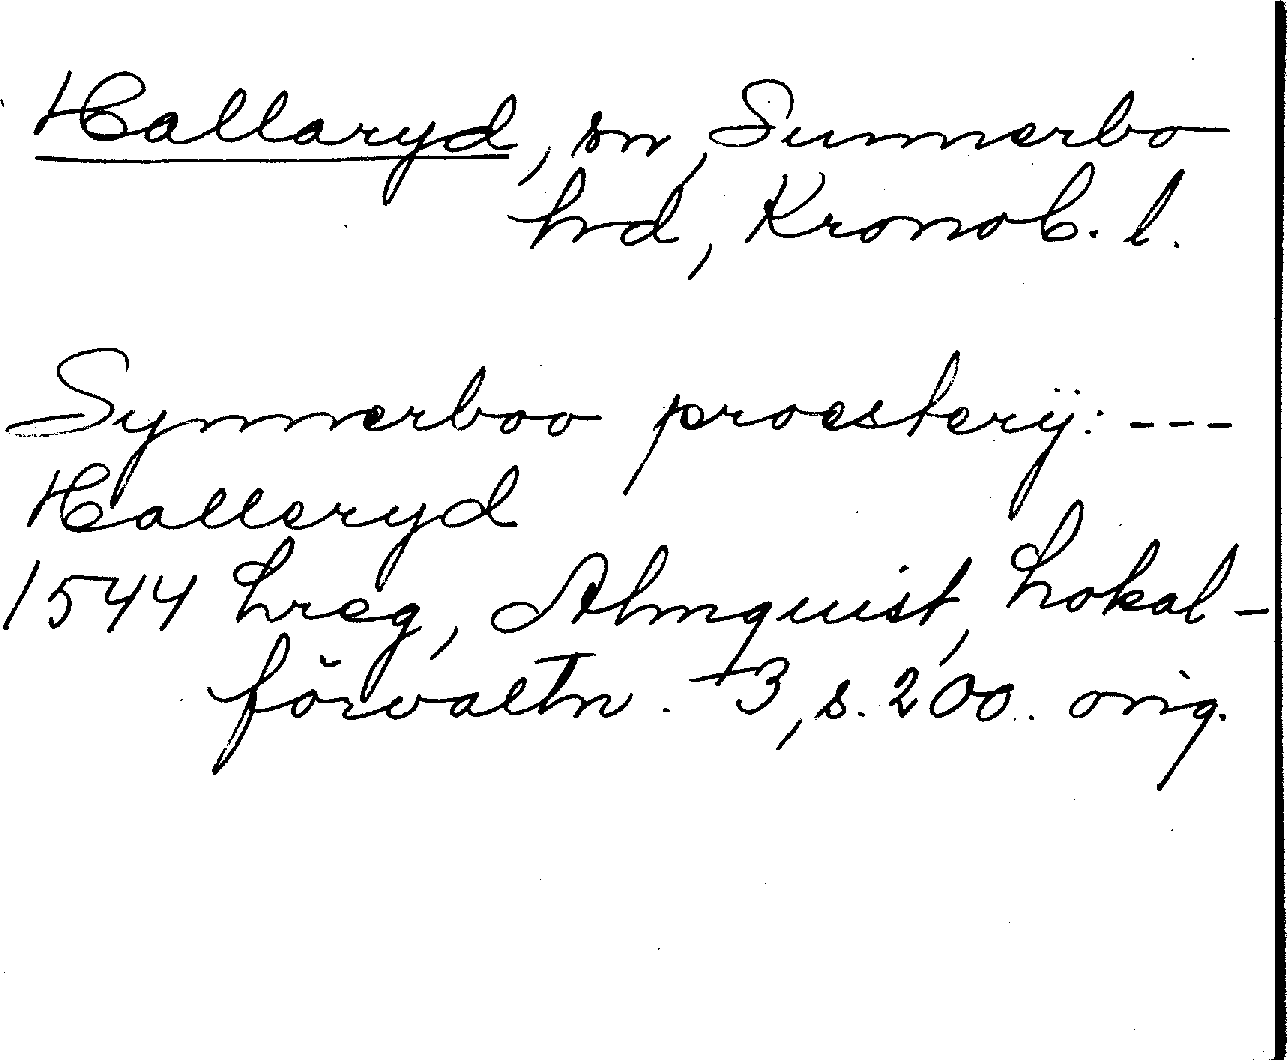 Hallaryd, sn, Sunnerbo
hd, Kronob. l.
Synnerboo proesterij: ---
Halleryd
1544 Lreg, Almquist, Lokal-
förvaltn. +3, s. 200. orig.